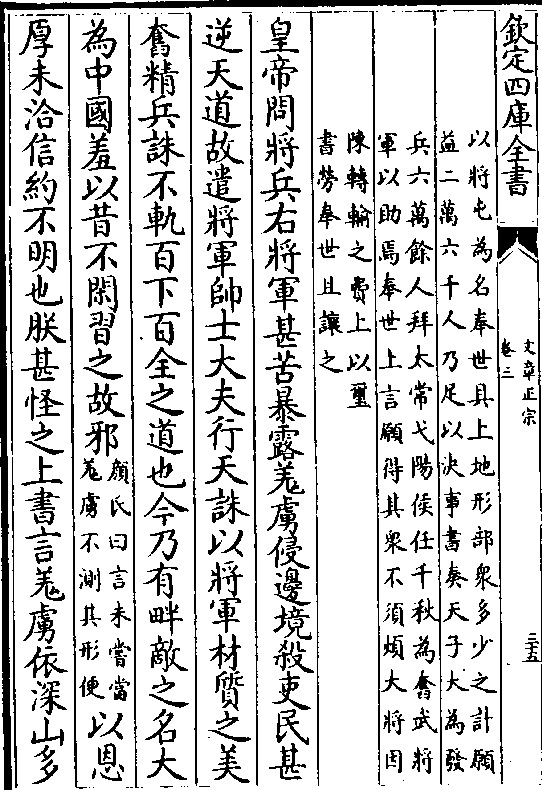 欽定四庫全書
文章正宗
卷三
三十五
以將屯為名奉世具上地形部衆多少之計願
益二萬六千人乃足以決事書奏天子大為發
兵六萬餘人拜太常弋陽侯任千秋為奮武將
軍以助焉奉世上言願得其衆不須煩大將因
陳轉輸之費上以璽
書勞奉世且讓之
皇帝問將兵右將軍甚苦暴露羗虜侵邊境殺吏民甚
逆天道故遣將軍帥士大夫行天誅以將軍材質之美
奮精兵誅不軌百下百全之道也今乃有畔敵之名大
為中國羞以昔不閑習之故邪顔氏曰言未嘗當羗虜不測其形便以恩
厚未洽信約不明也朕甚怪之上書言羗虜依深山多